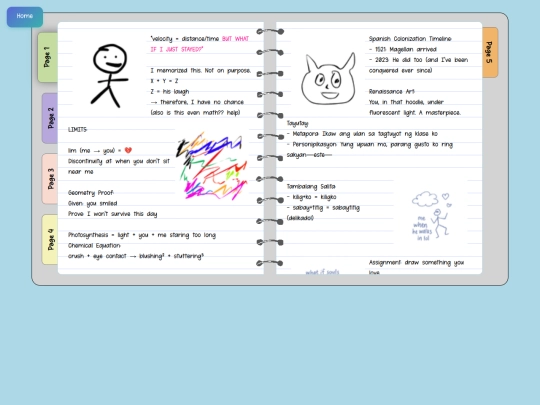 Home
Page 1
Page 2
Page 3
Page 4
Page 5
"velocity = distance/time BUT WHAT
IF I JUST STAYED?"
I memorized this. Not on purpose.
X + Y = Z
Z = his laugh
→ Therefore, I have no chance
(also is this even math?? help)
LIMITS
lim (me → you) = 💔
Discontinuity at when you don't sit
near me
Geometry Proof:
Given: you smiled
Prove: I won't survive this day
Photosynthesis = light + you + me staring too long
Chemical Equation:
crush + eye contact → blushing² + stuttering³
Spanish Colonization Timeline
- 1521: Magellan arrived
- 2023: He did too (and I've been
conquered ever since)
Renaissance Art:
You, in that hoodie, under
fluorescent light. A masterpiece.
Tayutay:
- Metapora: Ikaw ang ulan sa tagtuyot ng klase ko
- Personipikasyon: Yung upuan mo, parang gusto ko ring
sakyan—este—
Tambalang Salita:
- kilig+ko = kiligko
- sabay+titig = sabaytitig
(delikado!)
me
when
he walks
in lol
Assignment: draw something you
love
what if souls